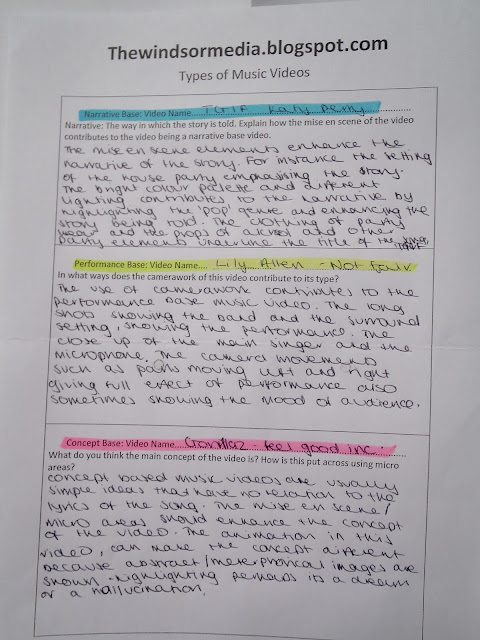 Thewindsormedia.blogspot.com
Types of Music Videos
Narrative Base: Video Name....TGIF Katy Perry..............
Narrative: The way in which the story is told. Explain how the mise en scene of the video
contributes to the video being a narrative base video.
The mise en scene elements enhance the
narrative of the story. For instance the setting
of the house party emphasising the story.
The bright colour palette and different
lighting contributes to the narrative by
highlighting the 'pop' genre and enhancing the
story being told. The clothing of party
wear and the props of alcohol and other
party elements underline the title of the
Performance Base: Video Name.... Lily Allen - Not fair.
In what ways does the camerawork of this video contribute to its type?
The use of camerawork contributes to the
performance base music video. The long
shot showing the band and the surround
setting, showing the performance. The
close up of the main singer and the
microphone. The camera movements
such as pans moving left and right
giving full effect of performance also
sometimes showing the mood of audience.
Concept Base: Video Name....Gorillaz - feel good inc.
What do you think the main concept of the video is? How is this put across using micro
areas?
concept based music videos are usually
simple ideas that have no relation to the
lyrics of the song. The mise en scene/
micro areas should enhance the concept
of the video. The animation in this
video, can make the concept different
because abstract/meterphorical images are
shown - highlighting perhaps its a dream
or a hallucination.